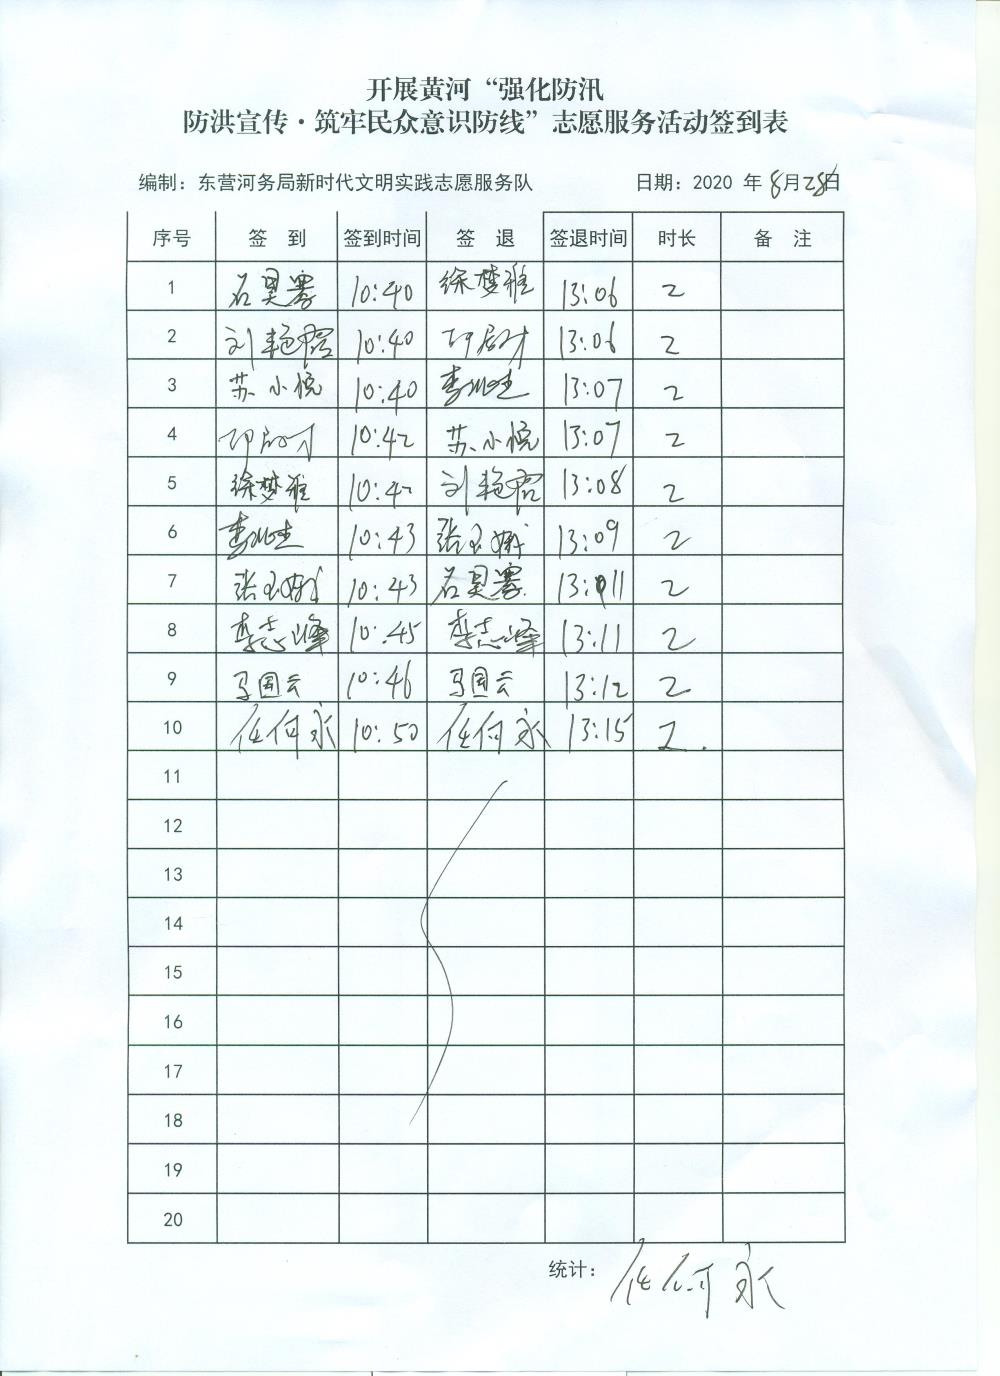 开展黄河“强化防汛
防洪宣传·筑牢民众意识防线”志愿服务活动签到表
编制：东营河务局新时代文明实践志愿服务队 日期：2020 年 8月28日
序号 签 到 签到时间 签 退 签退时间 时长 备 注
1 石昊骞 10:40 徐梦雅 13:06 2
2 刘艳君 10:40 13:06 2
3 苏小悦 10:40 13:07 2
4 10:42 苏小悦 13:07 2
5 徐梦雅 10:42 刘艳君 13:08 2
6 10:43 张玉娥 13:09 2
7 张玉娥 10:43 石昊骞 13:11 2
8 李志峰 10:45 李志峰 13:11 2
9 马国云 10:46 马国云 13:12 2
10 任何永 10:50 任何永 13:15 2.
11
12
13
14
15
16
17
18
19
20
统计： 任何永